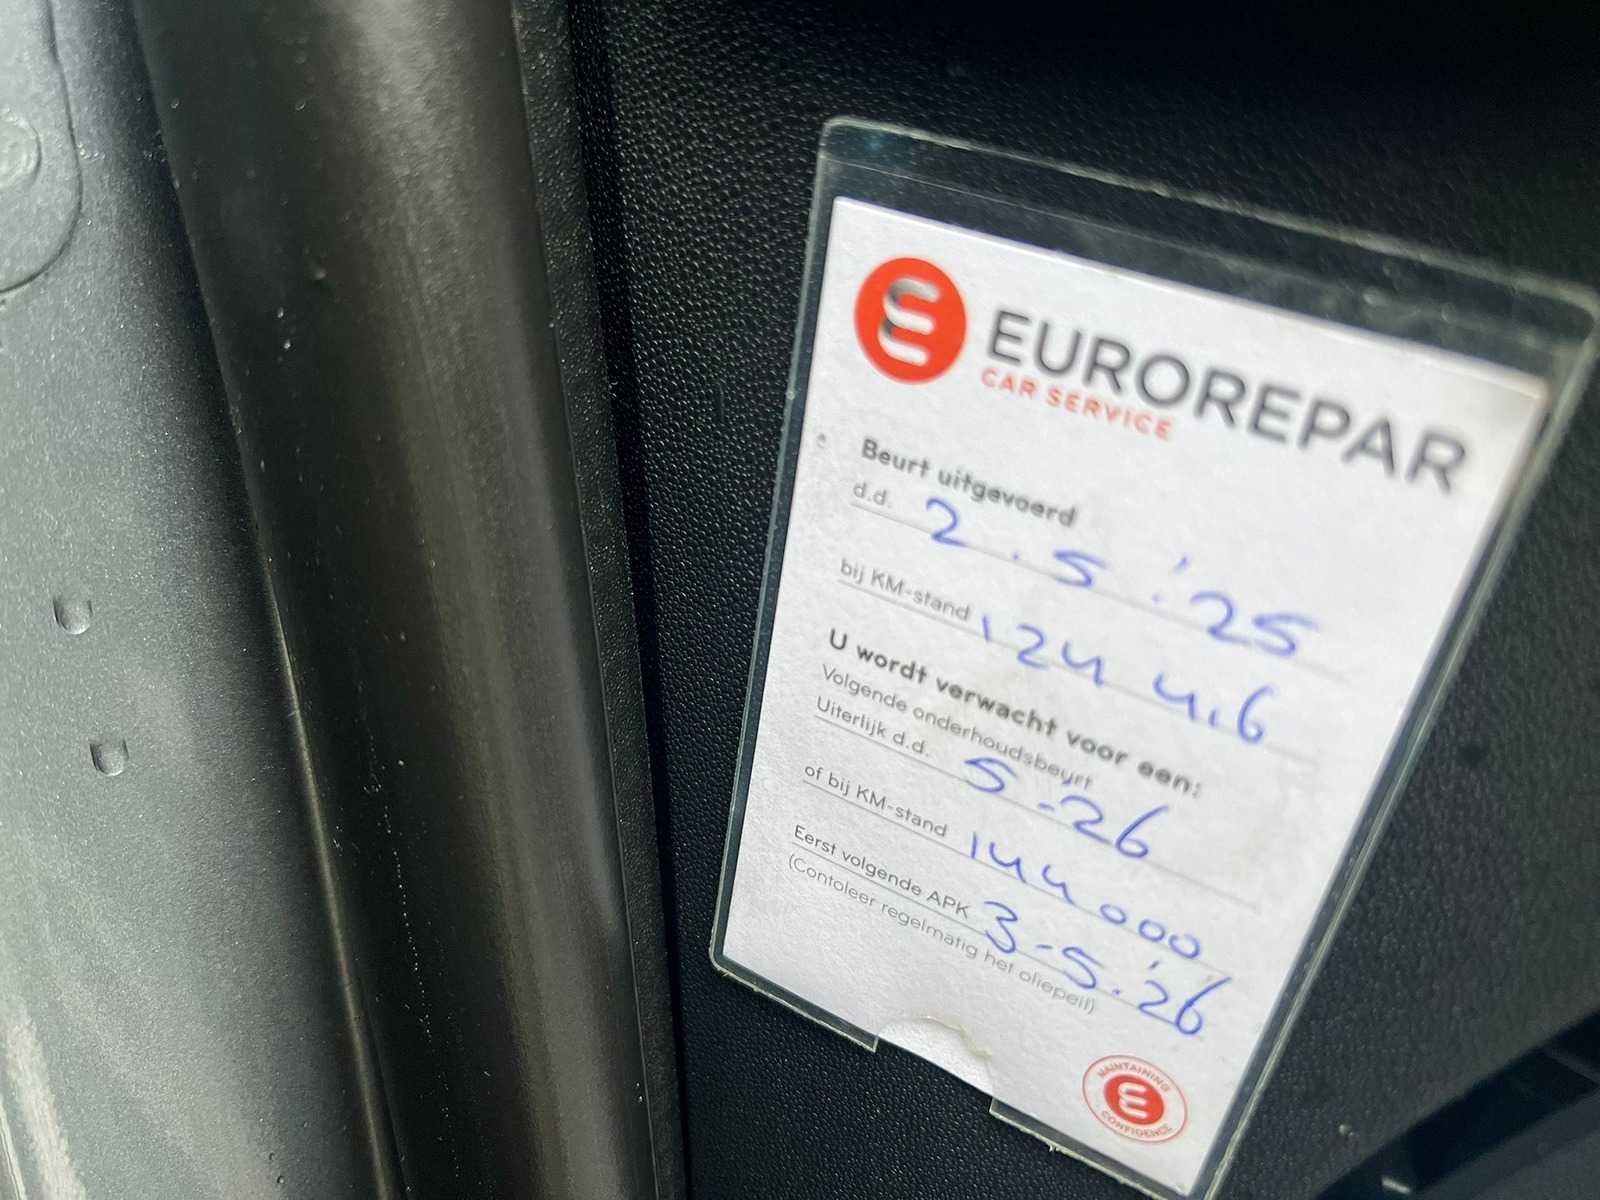 EUROREPAR
CAR SERVICE
Beurt uitgevoerd
d.d. 2.5.'25
bij KM-stand 124416
U wordt verwacht voor een:
Volgende onderhoudsbeurt
Uiterlijk d.d. 5-'26
of bij KM-stand 144000
Eerst volgende APK 3-5.'26
(Contoleer regelmatig het oliepeil)
MAINTAINING
CONFIDENCE